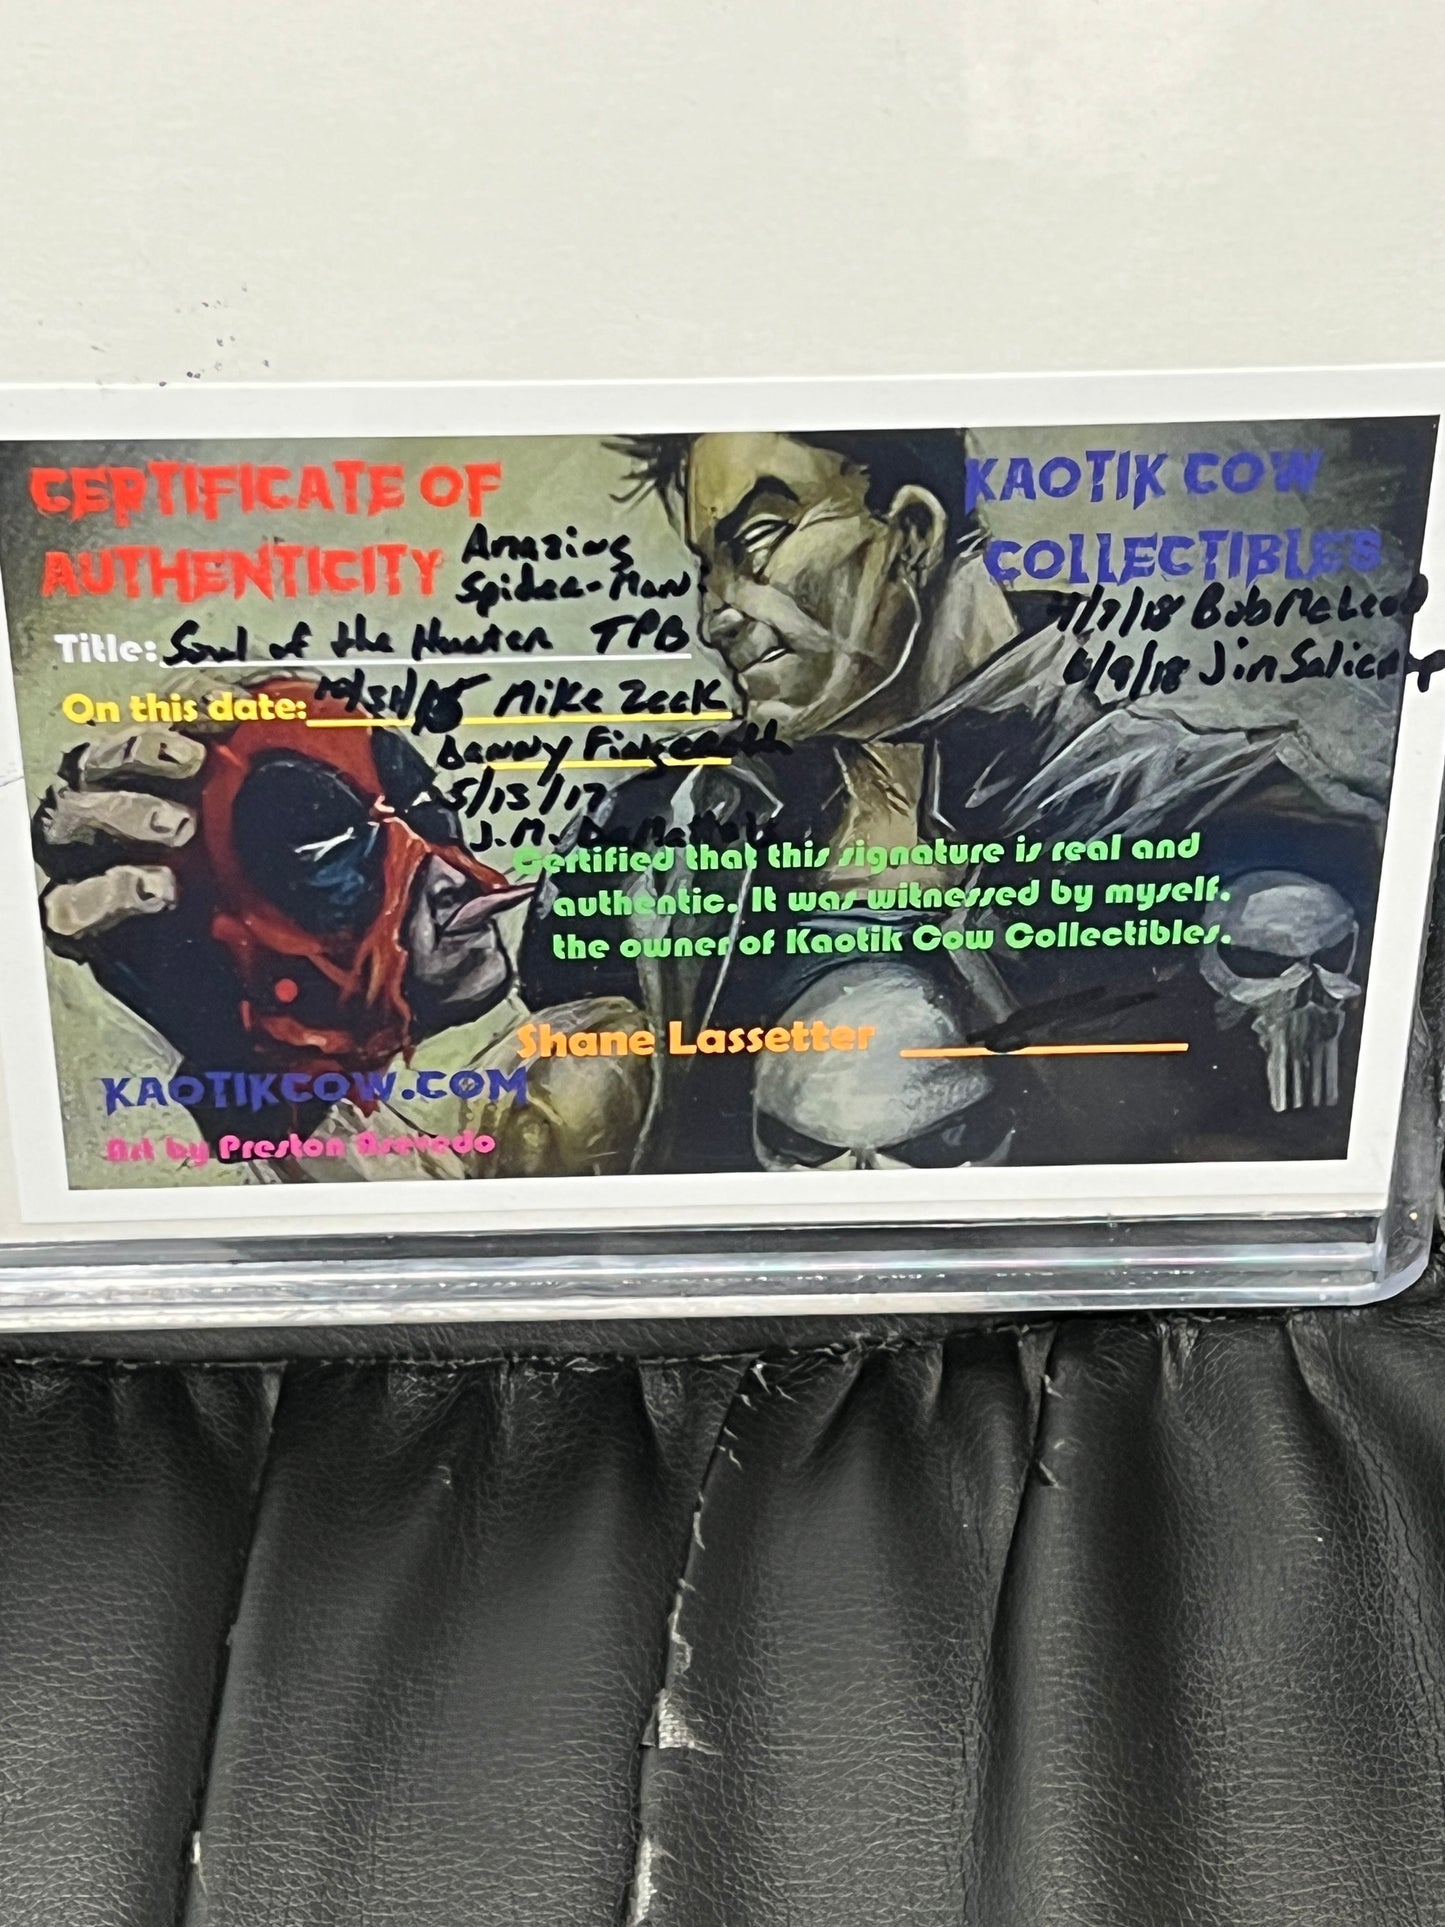 CERTIFICATE OF
AUTHENTICITY
Amazing
Spider-Man:
Title: Soul of the Hunter TPB
On this date: 10/31/15 Mike Zeck
Danny Fingeroth
5/13/17
J.M. DeMatteis
KAOTIK COW
COLLECTIBLES
7/7/18 Bob McLeod
6/9/18 Jim Salicrup
Certified that this signature is real and
authentic. It was witnessed by myself.
the owner of Kaotik Cow Collectibles.
Shane Lassetter
KAOTIKCOW.COM
Art by Preston Asevedo